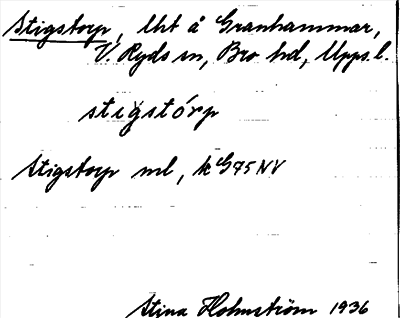 Stigstorp, lht å Granhammar,
V. Ryds sn, Bro hd, Upps. l.
stigstórp
Stigstorp ml, k G75NV
Stina Holmström 1936